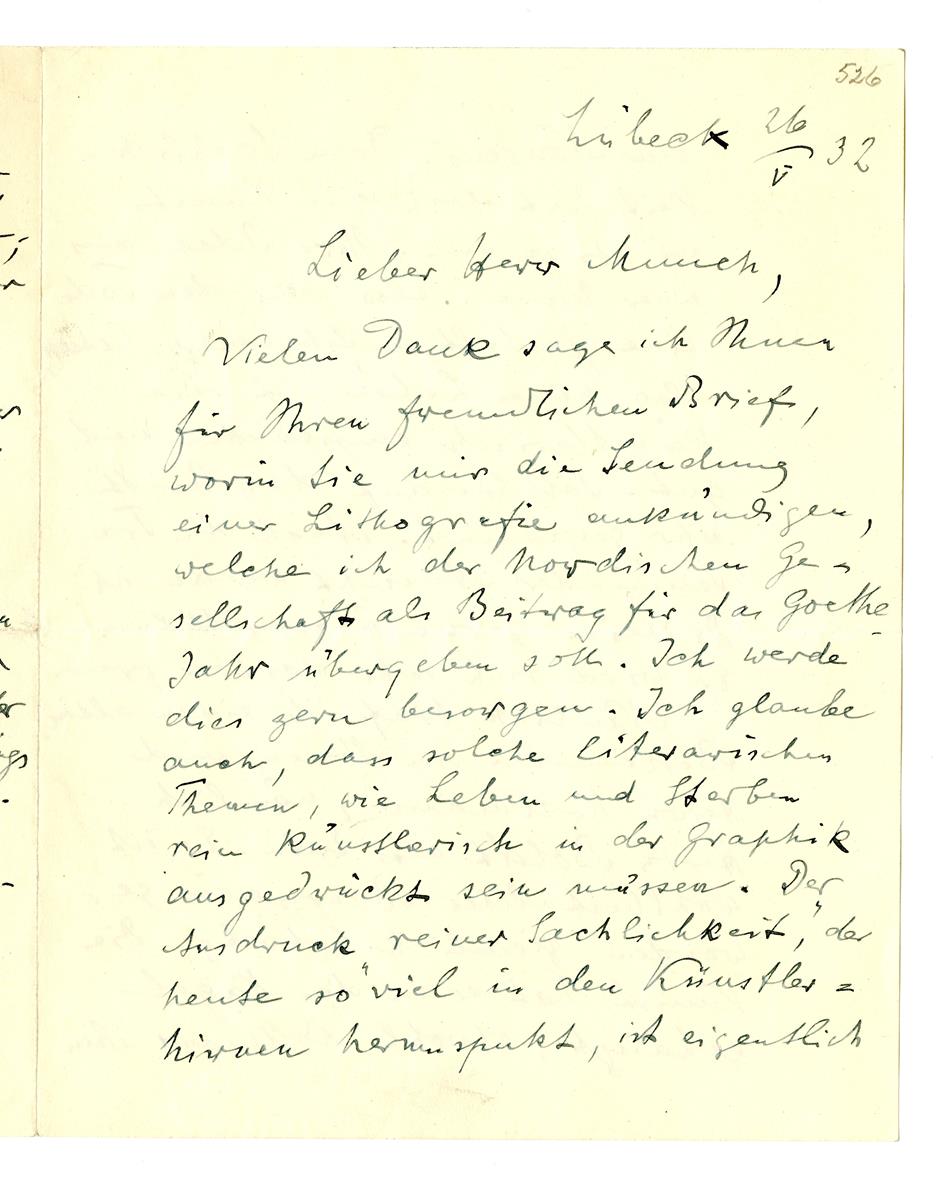 526
Lübeck 26/V 32
Lieber Herr Munch,
Vielen Dank sage ich Ihnen
für Ihren freundlichen Brief,
worin Sie mir die Sendung
einer Lithografie ankündigen,
welche ich der Nordischen Ge-
sellschaft als Beitrag für das Goethe-
Jahr übergeben soll. Ich werde
dies gern besorgen. Ich glaube
auch, dass solche literarischen
Themen, wie Leben und Sterben
rein künstlerisch in der Graphik
ausgedrückt sein müssen. Der
Ausdruck „reiner Sachlichkeit“, der
heute so viel in den Künstler=
hirnen herumspukt, ist eigentlich